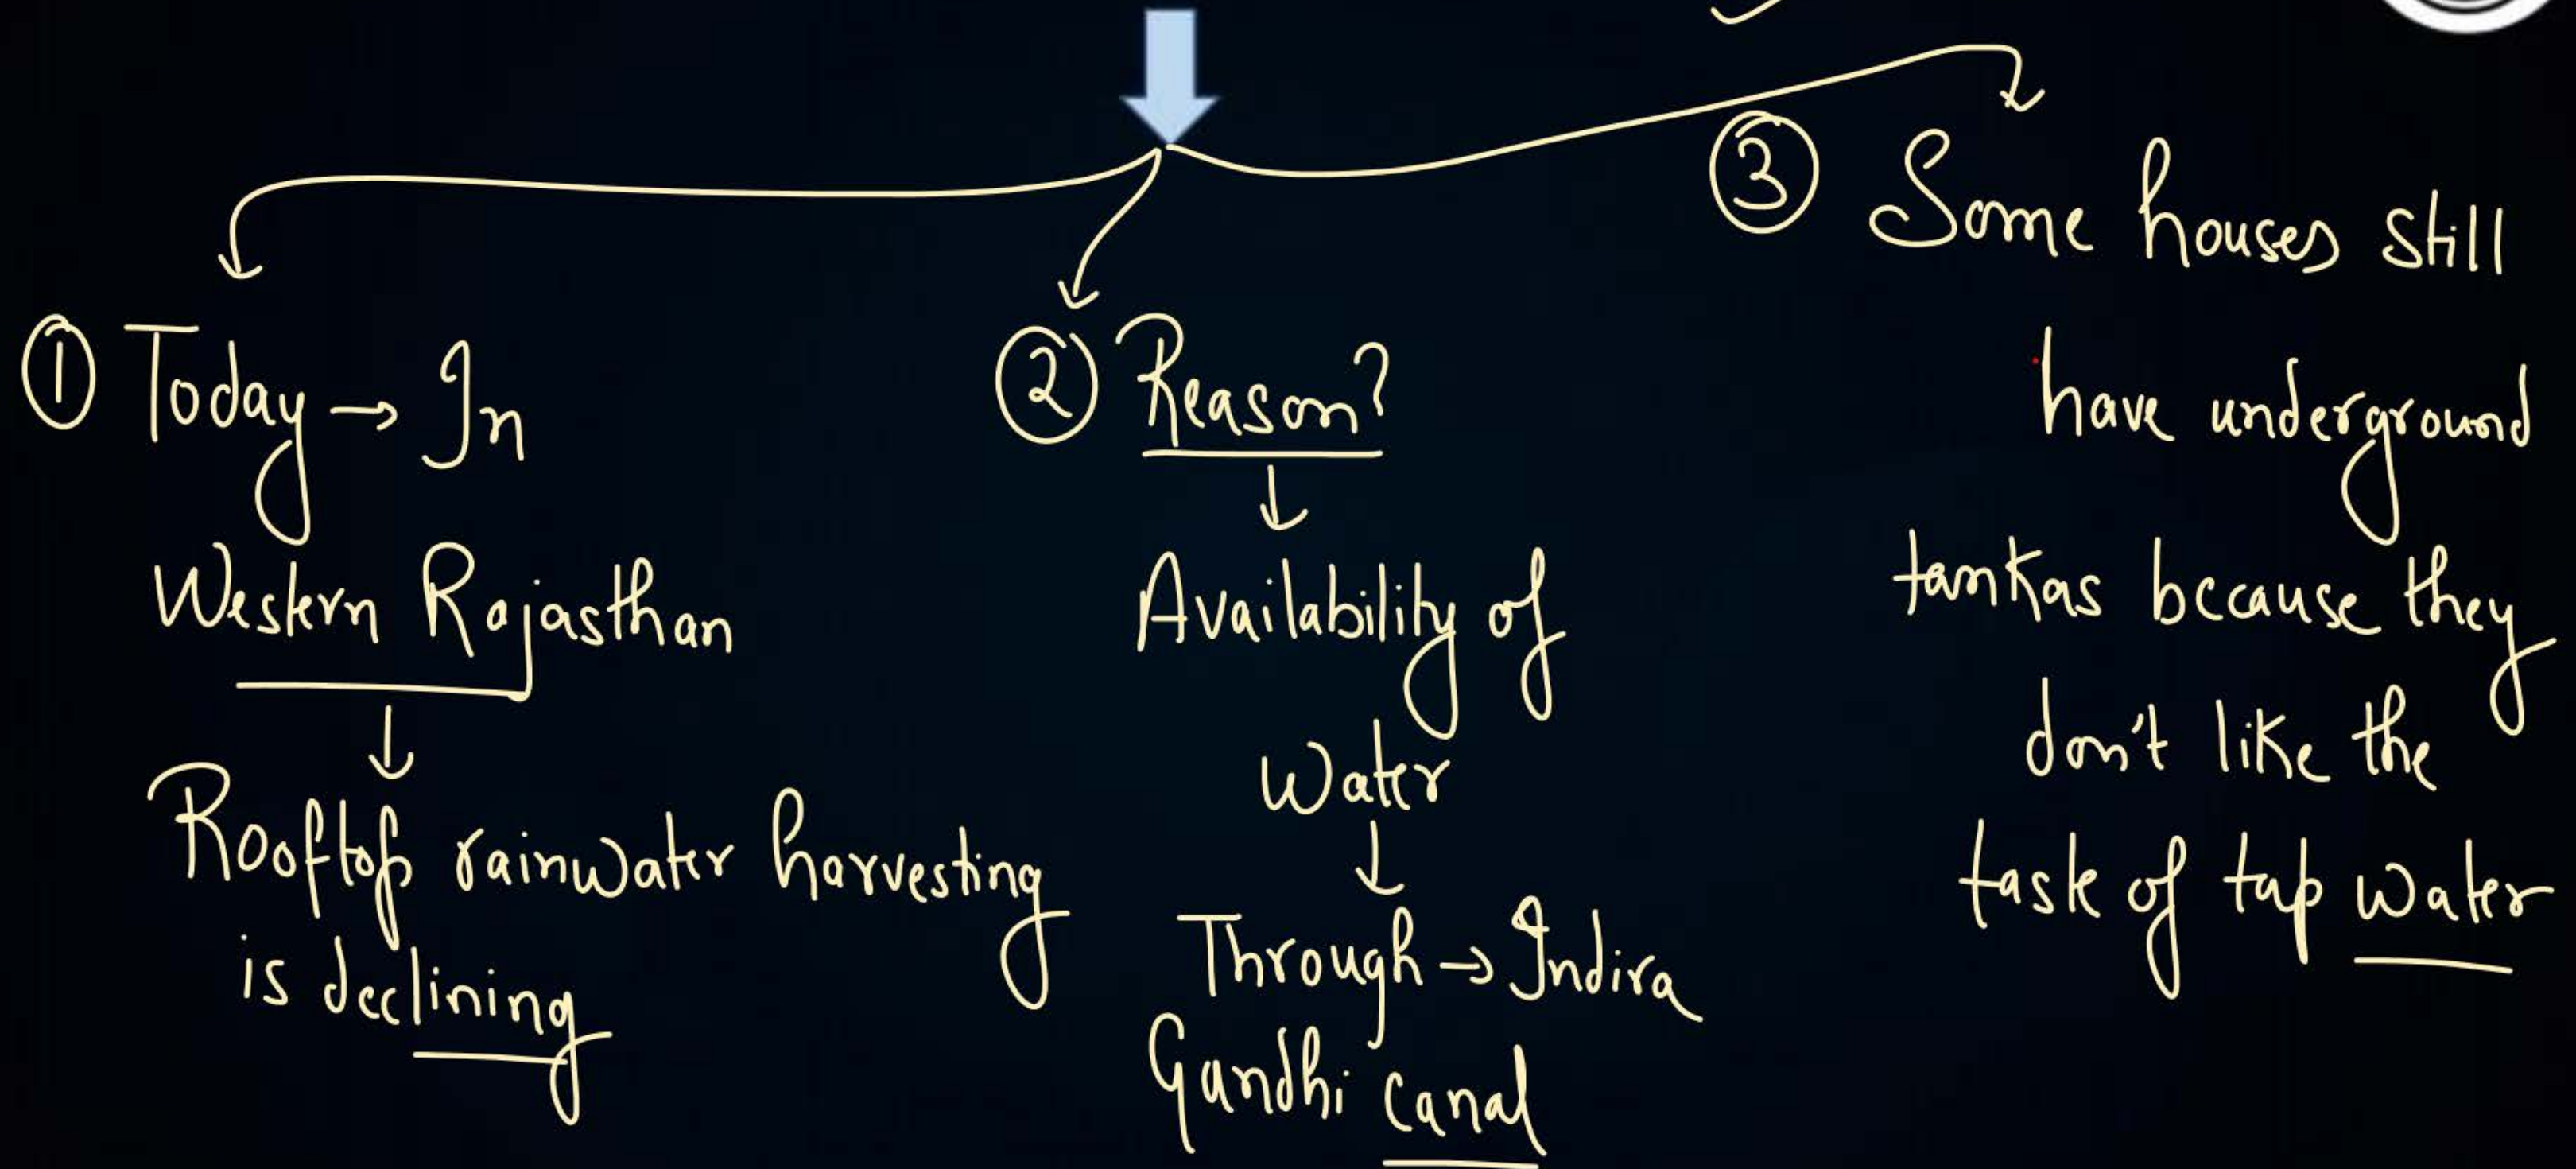 ① Today → In
Western Rajasthan
↓
Rooftop rainwater harvesting
is declining
② Reason?
↓
Availability of
Water
↓
Through → Indira
Gandhi canal
③ Some houses still
have underground
tankas because they
don't like the
taste of tap water